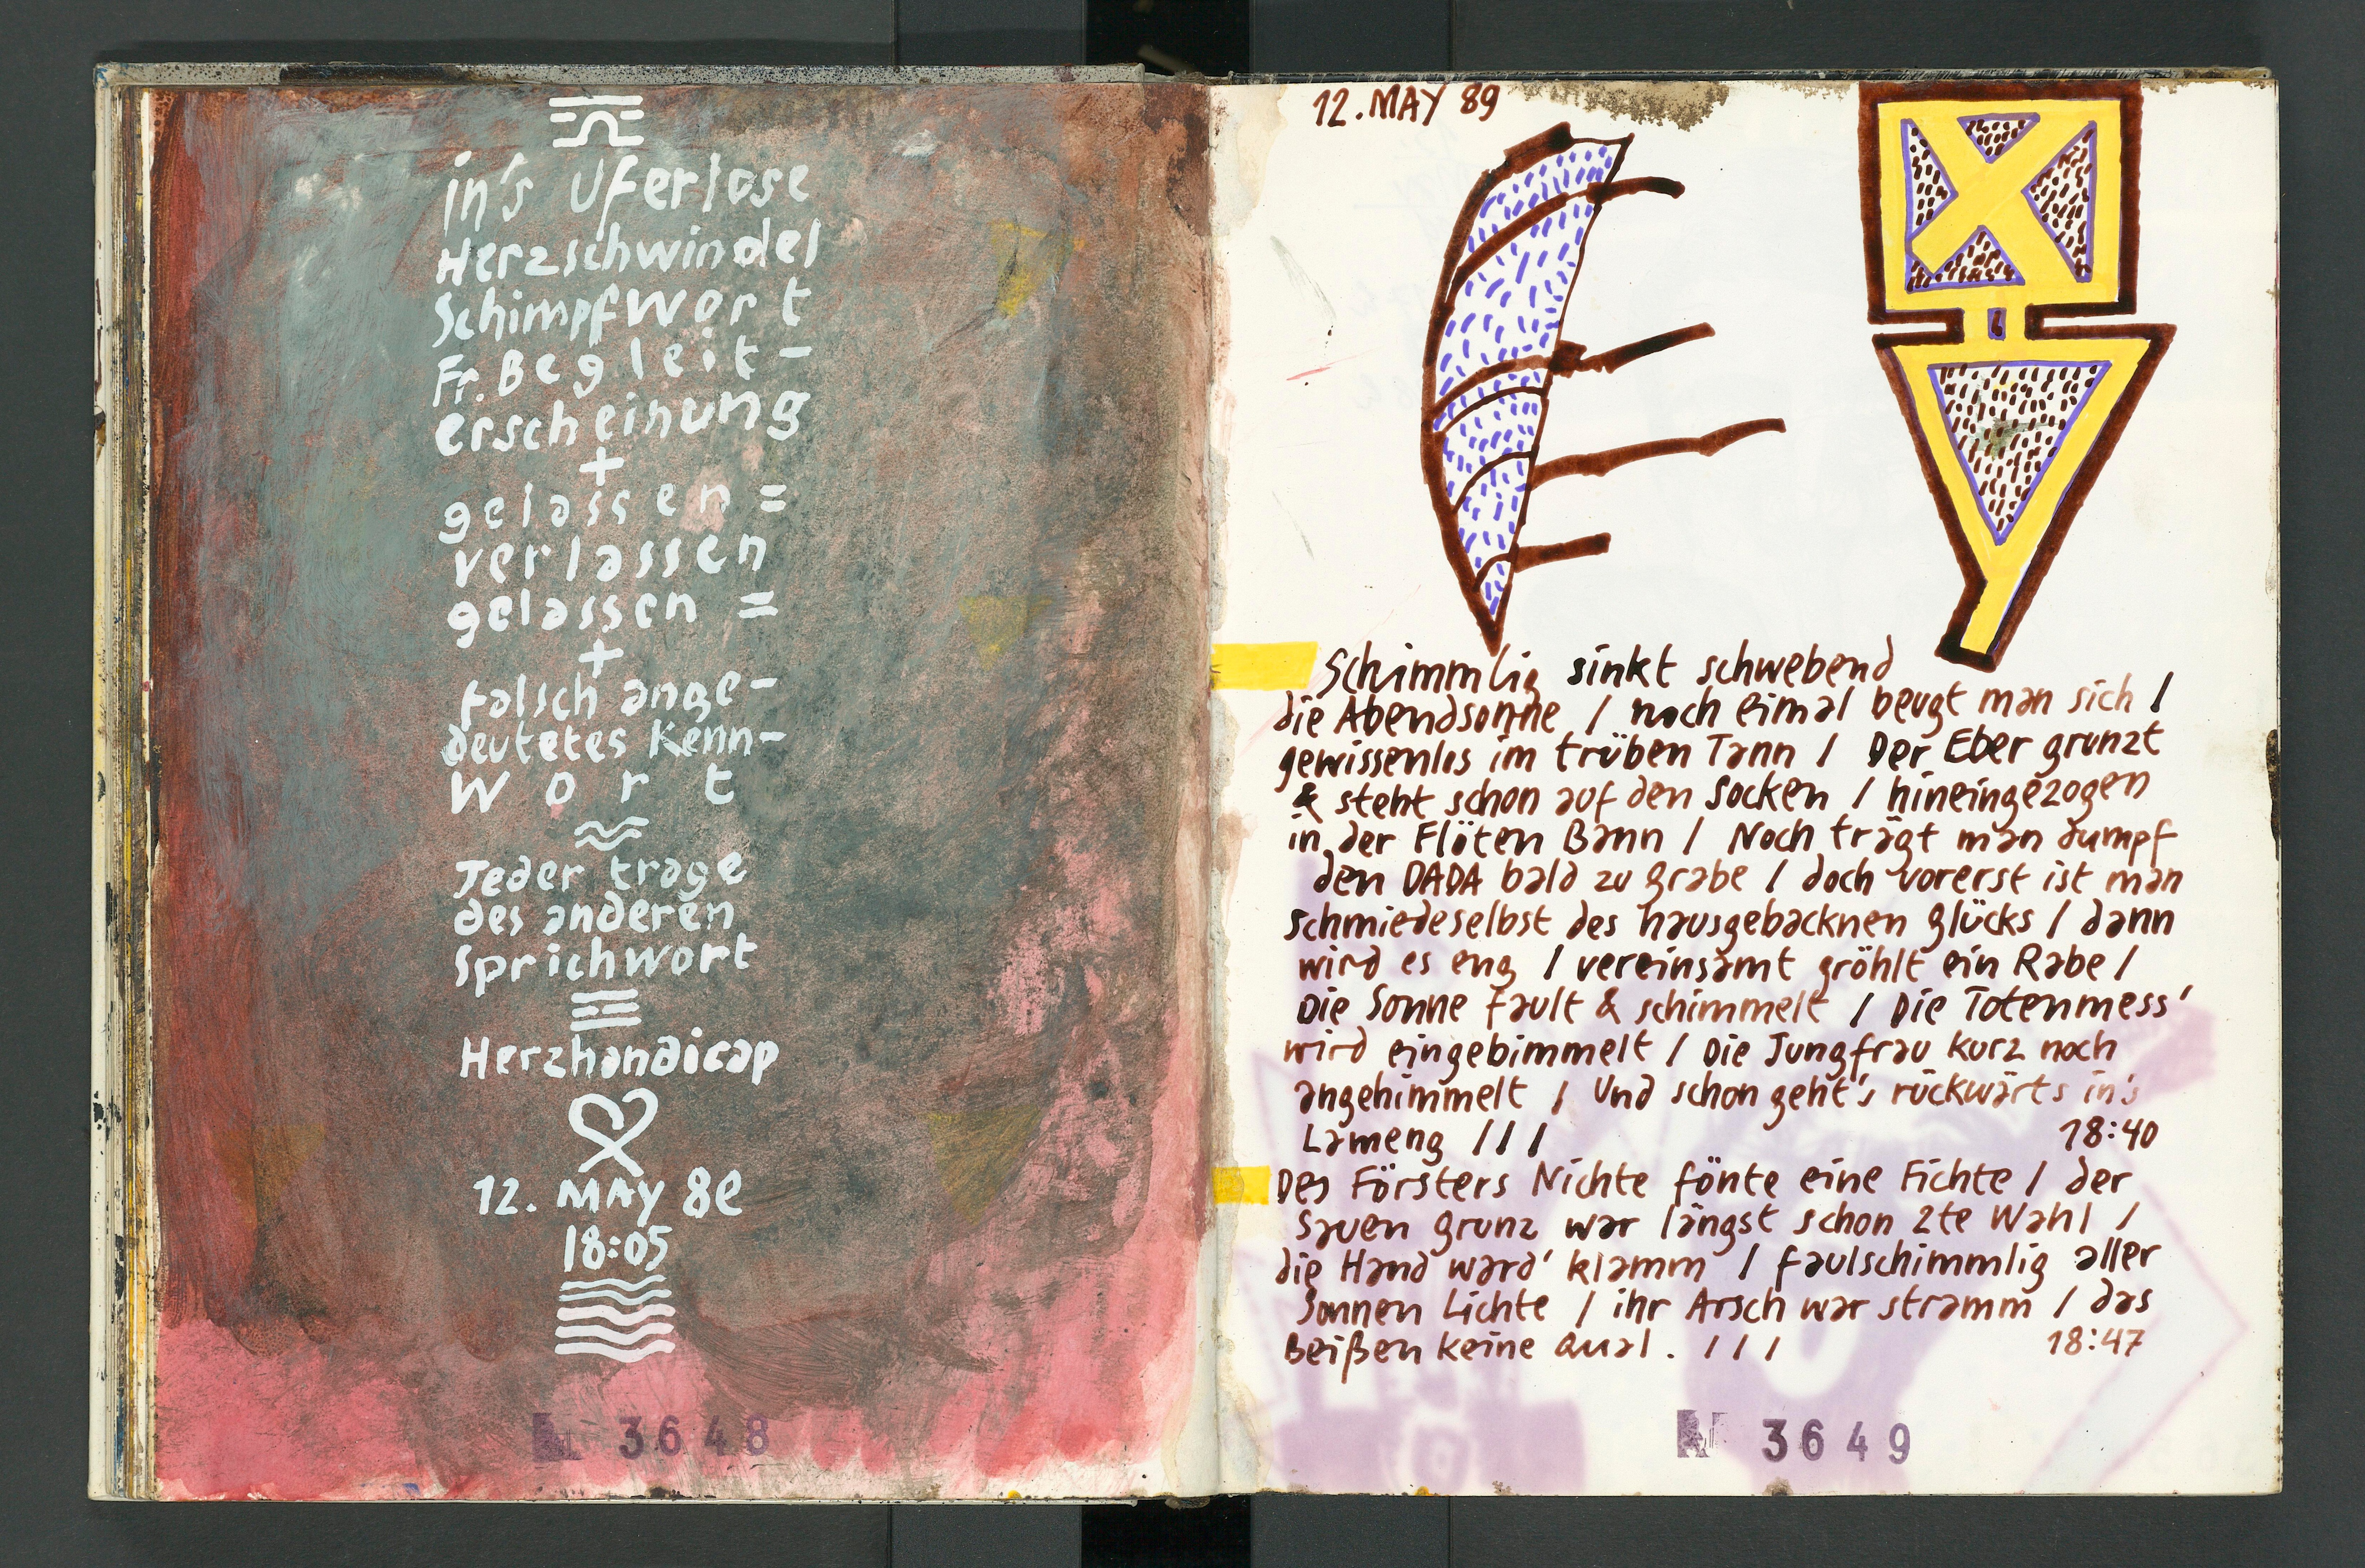 in's Uferlose
Herzschwindel
Schimpfwort
Fr. Begleit-
erscheinung
+
gelassen =
verlassen
gelassen =
+
falsch ange-
deutetes Kenn-
Wort
Jeder trage
des anderen
Sprichwort
Herzhandicap
12. MAY 8e
18:05
3648
12. MAY 89
Schimmlig sinkt schwebend
die Abendsonne / noch eimal beugt man sich /
gewissenlos im trüben Tann / Der Eber grunzt
& steht schon auf den Socken / hineingezogen
in der Flöten Bann / Noch trägt man dumpf
den DADA bald zu grabe / doch vorerst ist man
schmiedeselbst des hausgebacknen Glücks / dann
wird es eng / vereinsamt gröhlt ein Rabe /
Die Sonne fault & schimmelt / Die Totenmess'
wird eingebimmelt / Die Jungfrau kurz noch
angehimmelt / Und schon geht's rückwärts in's
Lameng / / / 18:40
Des Försters Nichte fönte eine Fichte / der
Sauen grunz war längst schon 2te Wahl /
die Hand ward' klamm / faulschimmlig aller
Sonnen Lichte / ihr Arsch war stramm / das
Beißen keine Qual. / / / 18:47
3649